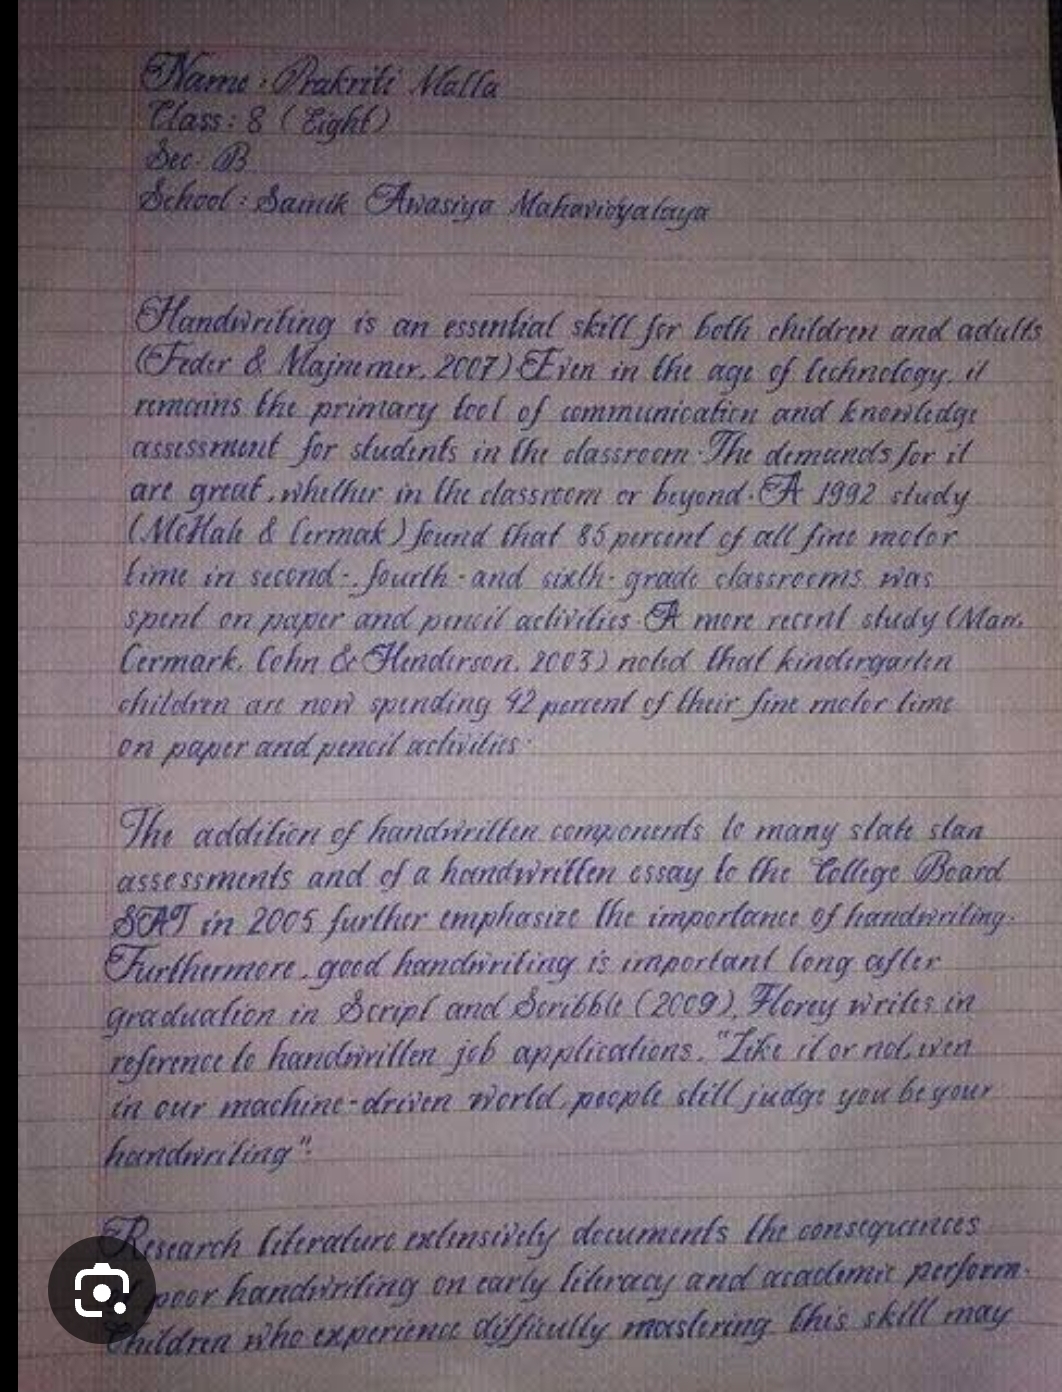 Name : Prakriti Malla
Class : 8 ( Eight )
Sec : B
School : Sainik Awasiya Mahavidyalaya
Handwriting is an essential skill for both children and adults
(Feder & Majnemer, 2007) Even in the age of technology, it
remains the primary tool of communication and knowledge
assessment for students in the classroom. The demands for it
are great, whether in the classroom or beyond. A 1992 study
(McHale & Cermak) found that 85 percent of all fine motor
time in second-, fourth-and sixth-grade classrooms was
spent on paper and pencil activities. A more recent study (Marr,
Cermark, Cohn & Henderson, 2003) noted that kindergarten
children are now spending 42 percent of their fine motor time
on paper and pencil activities.
The addition of handwritten components to many state stan
assessments and of a handwritten essay to the College Board
SAT in 2005 further emphasize the importance of handwriting.
Furthermore, good handwriting is important long after
graduation in Script and Scribble (2009), Florey writes in
reference to handwritten job applications, "Like it or not, even
in our machine-driven world, people still judge you be your
handwriting".
Research literature extensively documents the consequences
poor handwriting on early literacy and academic perform.
Children who experience difficulty mastering this skill may